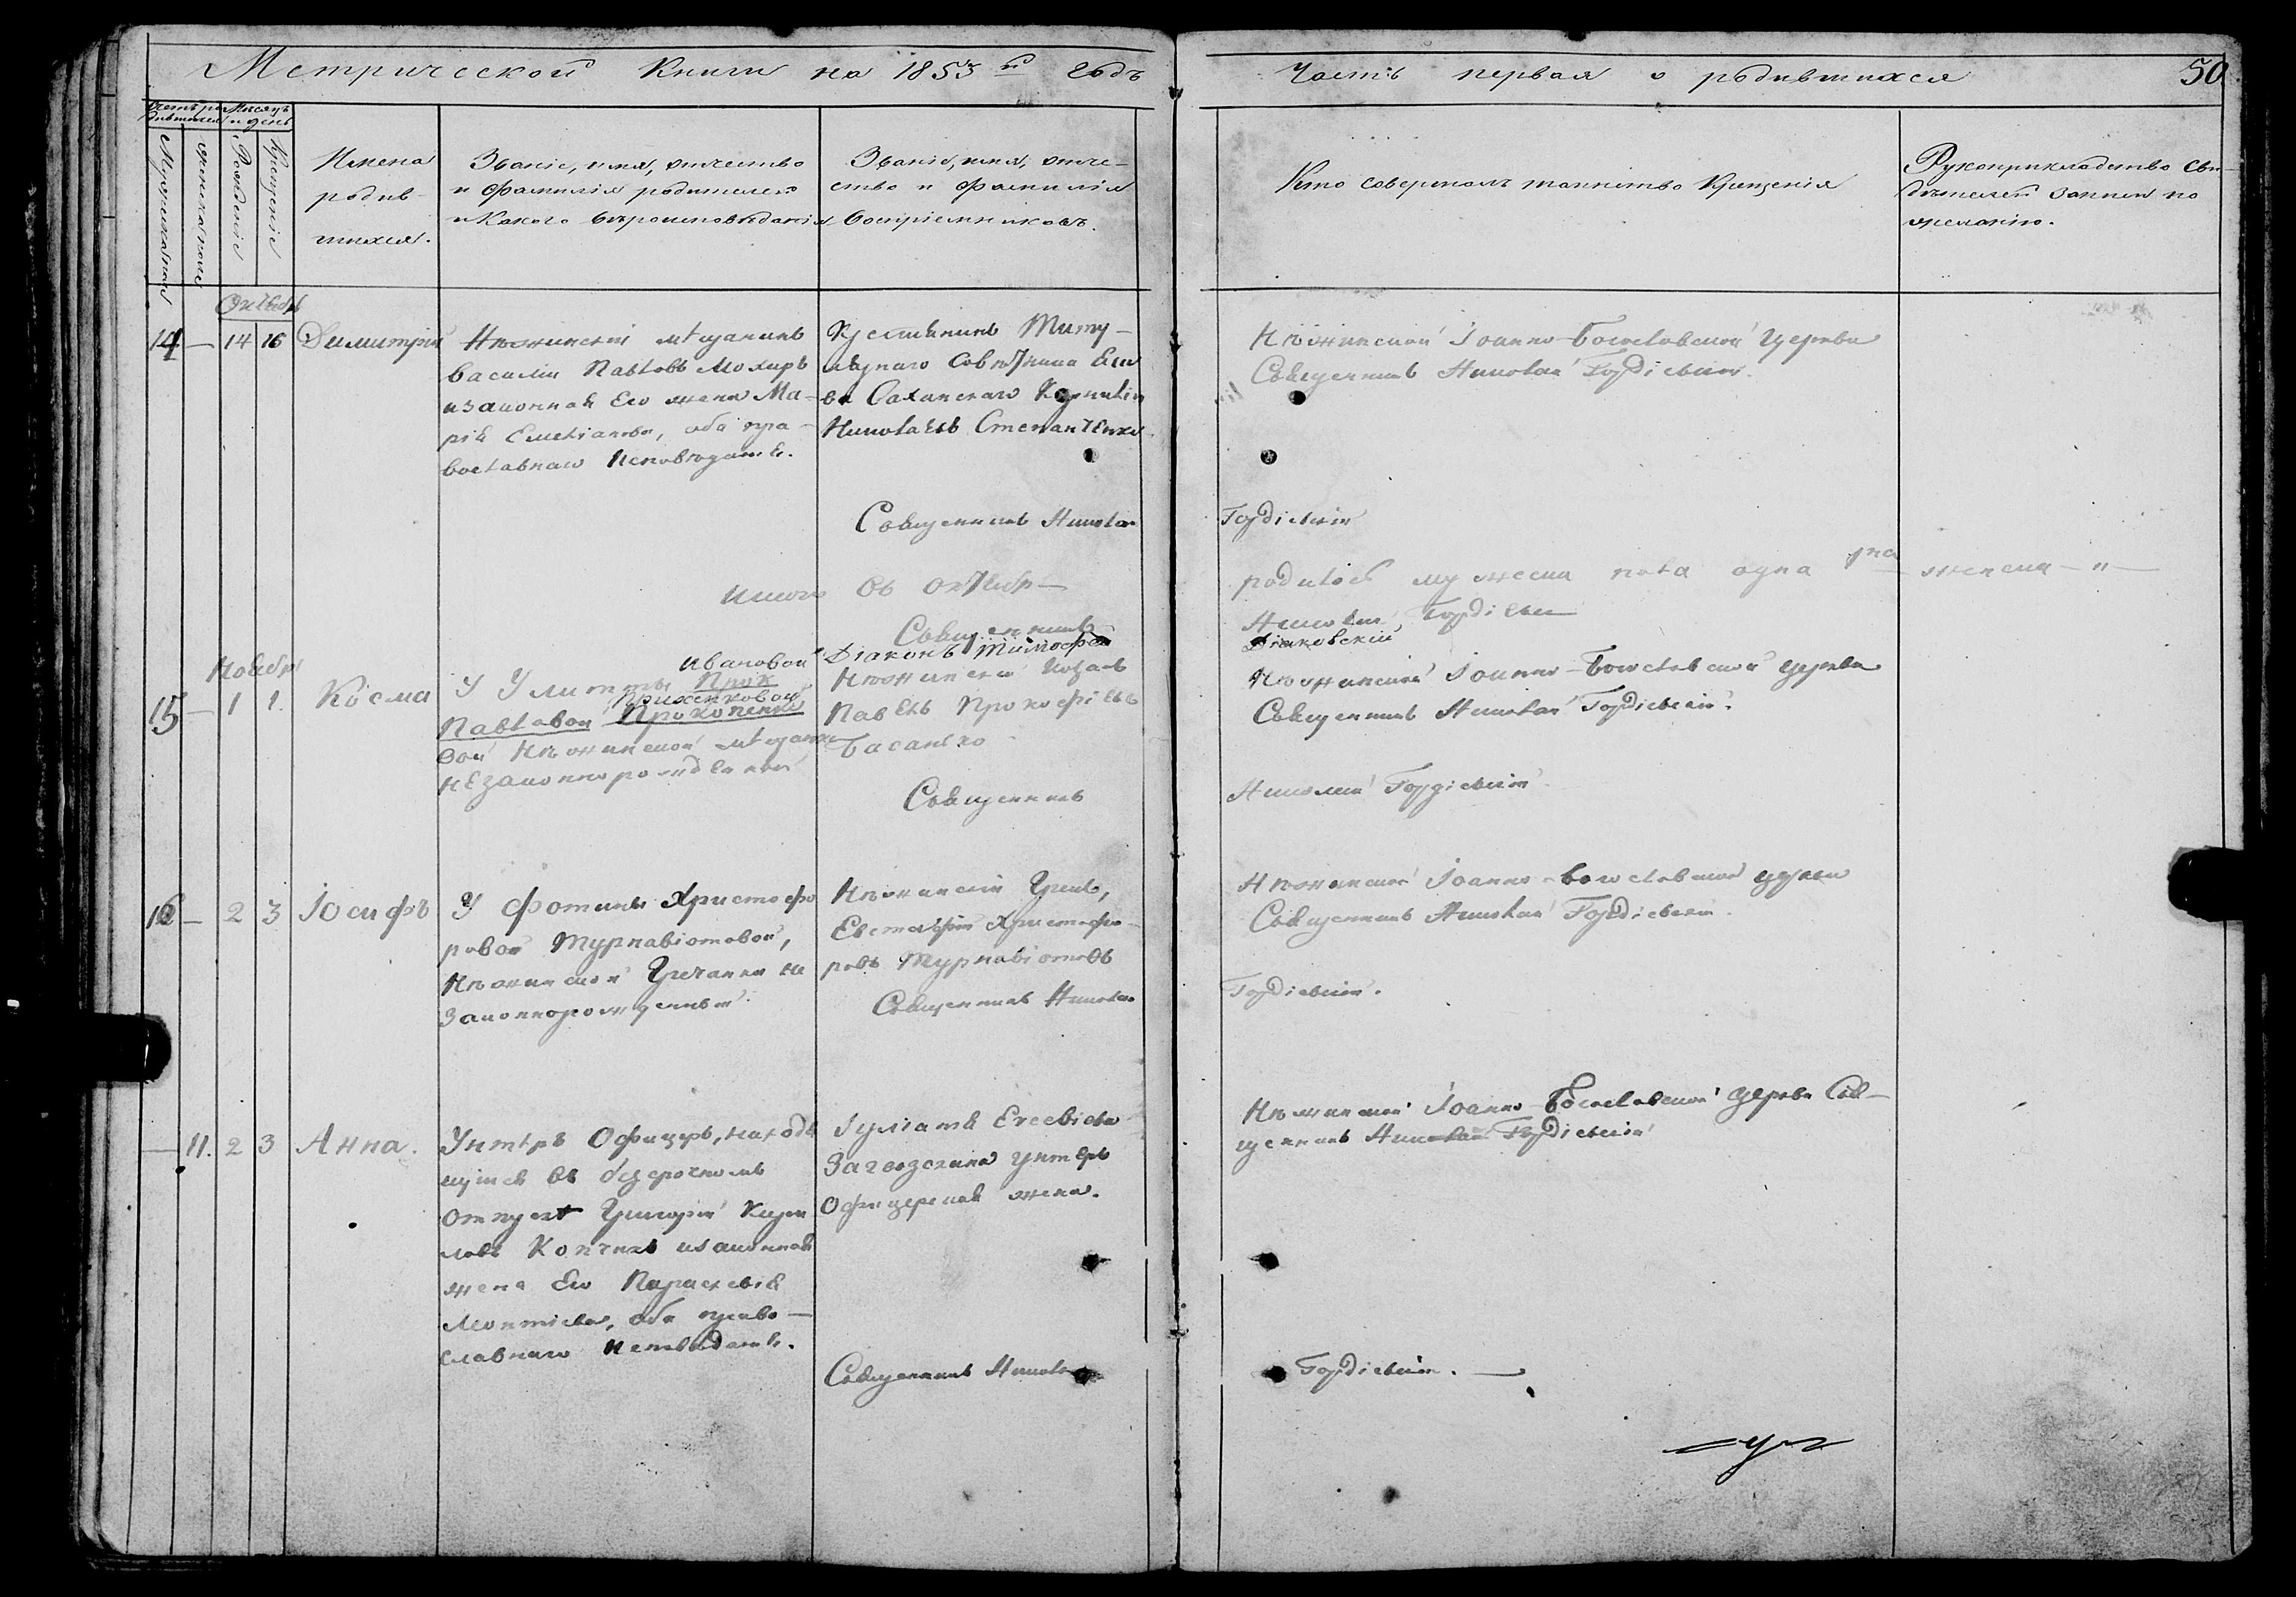 Метрической Книги на 1853й годъ
Часть первая о родившихся
50
Счетъ родившихся
Мѣсяцъ и день
Мужеска пола
женска пола
Рожденіе
Крещеніе
Имена
родив-
шихся.
Званіе, имя, отчество
и фамилія родителей
и какого вѣроисповѣданія
Званіе, имя, отче-
ство и фамилія
воспріемниковъ.
Кто совершалъ таинство Крещенія
Рукоприкладство сви-
дѣтелей записи по
желанію.
14 — 14 16 Димитрій
Нѣжинскій мѣщанинъ
Василій Павловъ
и законная Его жена Ма-
рія Емеліанова, оба пра-
вославнаго исповѣданія.
Крестянинъ Титу-
лярнаго Совѣтника
Корнилій
Николаевъ Степанченко
Нѣжинской Іоанно-Богословской Церкви
Священникъ Николай Гордіевскій.
Священникъ Николай
Гордіевскій
Итого въ Октябрѣ —
родилось мужеска пола одна женска — " —
Священникъ
Николай Гордіевскій
Діаконъ Тимофей
Діаковскій
Ноябрь
15 — 1 1. Косма
Ивановой
У Улитты Прок
Павловой Прокопенко
вой Нѣжинской мѣщанки
незаконнорожденный
Нѣжинскій Козакъ
Павелъ Прокофіевъ
Басанько
Нѣжинской Іоанно-Богословской церкви
Священникъ Николай Гордіевскій.
Священникъ
Николай Гордіевскій
16 — 2 3 Іосифъ
У Фотины Христофо
ровой Турнавіотовой,
Нѣжинской Гречанки не
законнорожденный.
Нѣжинскій Грекъ,
Евстафій Христофо-
ровъ Турнавіотовъ
Нѣжинской Іоанно-Богословской церкви
Священникъ Николай Гордіевскій.
Священникъ Николай
Гордіевскій.
— 11. 2 3 Анна.
Унтеръ Офицеръ, находя
щійся въ безсрочномъ
отпуску Григорій Кирил
ловъ и законная
жена Его Параскевія
Леонтіева, оба право-
славнаго исповѣданія.
Гуліата Евсевіева
унтеръ
Офицерская жена.
Нѣжинской Іоанно-Богословской Церкви Свя-
щенникъ Николай Гордіевскій
Священникъ Николай
Гордіевскій. —